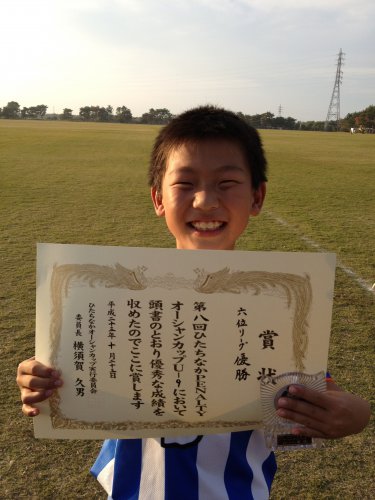 賞状
六位リーグ優勝
第八回ひたちなかPENALTY
オーシャンカップU-9において
頭書のとおり優秀な成績を
収めたのでこれを賞します
平成二十五年十月二十七日
ひたちなかオーシャンカップ実行委員会
委員長 横須賀 久男